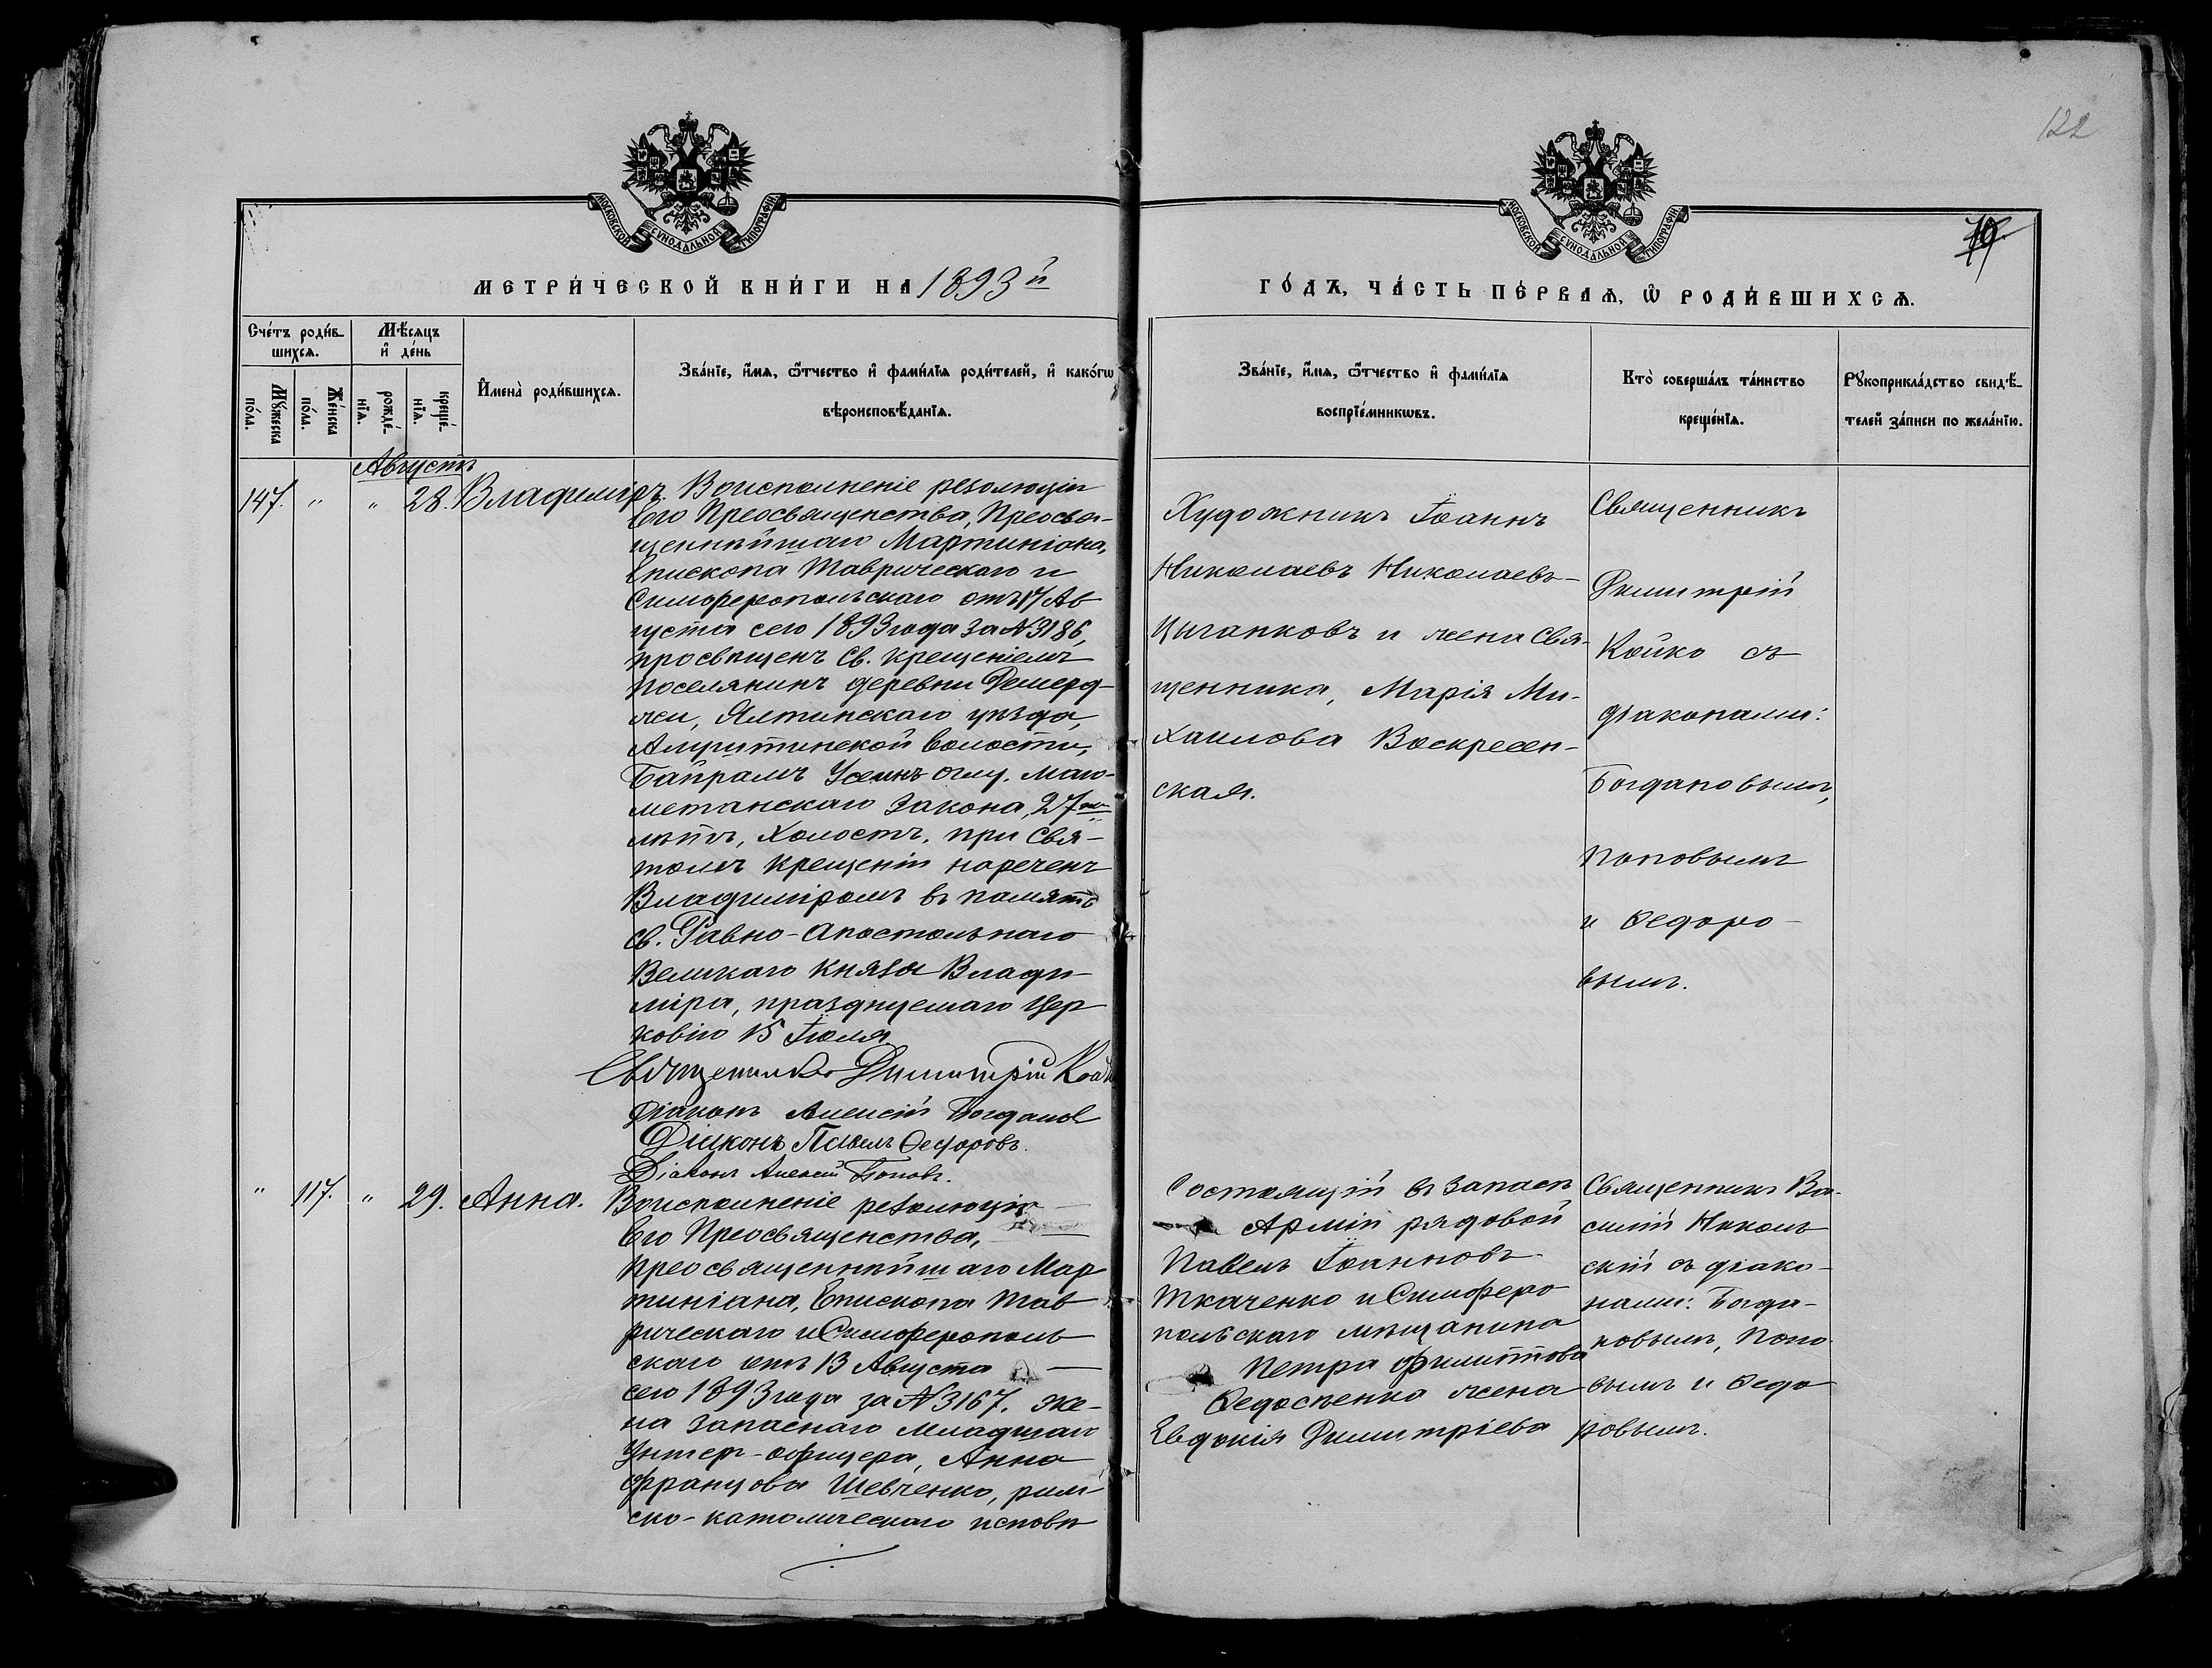 122
70
МОСКОВСКОЙ СУНОДАЛЬНОЙ ТИПОГРАФІИ
МОСКОВСКОЙ СУНОДАЛЬНОЙ ТИПОГРАФІИ
МЕТРИ́ЧЕСКОЙ КНИ́ГИ НА 1893 й
ГО́ДЪ, ЧА́СТЬ ПЕ́РВАѦ, Ѡ҆ РОДИ́ВШИХСѦ.
Сче́тъ роди́в-
шихсѧ.
Мѣ́сяцъ
и҆ де́нь
Мꙋ́жеска по́ла.
Же́нска по́ла.
рожде́-нїѧ.
креще́-нїѧ.
И҆мена̀ роди́вшихсѧ.
Зва́нїе, и҆́мѧ, ѻ҆́тчество и҆ фами́лїѧ роди́телей, и҆ како́гѡ
вѣроисповѣ́данїѧ.
Зва́нїе, и҆́мѧ, ѻ҆́тчество и҆ фами́лїѧ
воспрїе́мникѡвъ.
Кто̀ соверша́лъ та́инство
креще́нїѧ.
Рꙋкоприкла́дство свидѣ́-
телей за́писи по жела́нїю.
Августъ
147. " " 28. Владиміръ. Воисполненіе резолюціи
Его Преосвященства, Преосвя-
щеннѣйшаго Мартиніана,
Епископа Таврическаго и
Симферопольскаго отъ 17 Ав
густа сего 1893 года за № 3186,
просвѣщенъ Св. крещеніемъ
поселянинъ деревни Демерд-
жи, Ялтинскаго уѣзда,
Алуштинской волости,
Байрамъ Усеинъ оглу. Маго-
метанскаго закона, 27ми
лѣтъ, холостъ, при Свя-
томъ крещеніи нареченъ
Владиміромъ въ память
Св. Равно-Апостольнаго
Великаго Князя Влади-
міра, празднуемаго Цер
ковію 15 Іюля.
Священникъ Димитрій Кой
Діаконъ Алексій Богданов
Діаконъ Павелъ Ѳедоровъ.
Діаконъ Алексій Поповъ.
Художникъ Іоаннъ
Николаевъ Николаевъ-
Цыганковъ и жена Свя-
щенника, Марія Ми-
хаилова Воскресен-
ская.
Священникъ
Димитрій
Койко съ
діаконами:
Богдановымъ,
Поповымъ
и Ѳедоро-
вымъ.
" 117. " 29. Анна. Воисполненіе резолюціи
Его Преосвященства,
Преосвященнѣйшаго Мар
тиніана, Епископа Тав
рическаго и Симферополь
скаго отъ 13 Августа
сего 1893 года за № 3167. Же-
на запаснаго младшаго
Унтер-офицера, Анна
Францова Шевченко, рим-
ско-католическаго исповѣ
Состоящій въ запасѣ
Арміи рядовой
Павелъ Іоанновъ
Ткаченко и Симферо
польскаго мѣщанина
Петра Филиппова
Ѳедосѣенко жена
Евдокія Димитріева
Священникъ Ва-
силій Николь
скій съ діако-
нами: Богда-
новымъ, Попо-
вымъ и Ѳедо
ровымъ.